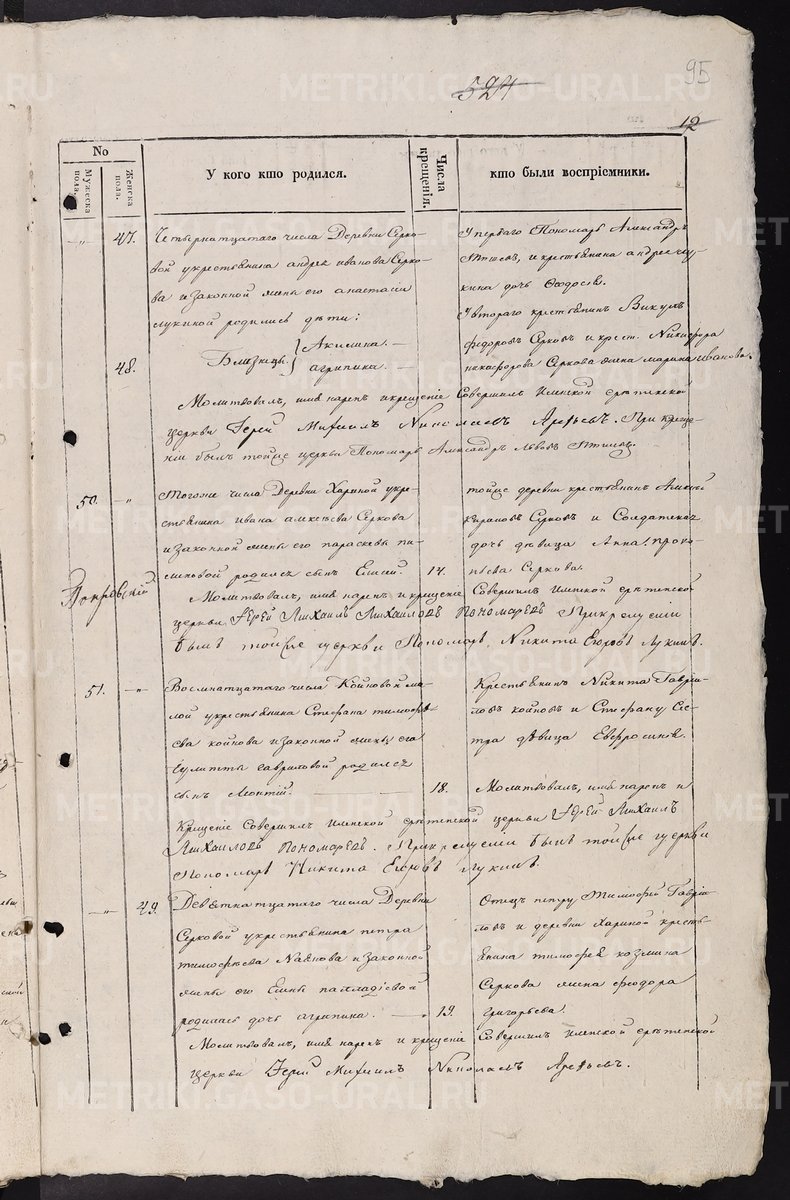 95
524
12
No
Мужеска пола.
Женска пола.
У кого кто родился.
Числа крещенія.
кто были воспріемники.
—„ 47. Четырнатцатаго числа Деревни Серко-
вой укрестьянина андрея иванова Серко-
ва изаконной жены его анастасіи
лукиной родились дѣти:
48. Близнецы: Акилина. —
агрипина. —
Упервого Пономарь Александръ
Птицевъ, и крестьянина андрея
кина дочь Феодосія.
Увтораго крестьянинъ Викулъ
федоровъ Серковъ и крест. Никифора
никифорова Серкова жена марина иванова.
Молитвовалъ, имя нарекъ икрещеніе Совершилъ Илимской срѣтенской
церкви Іерей Михаилъ Николаевъ Арефьевъ. При креще-
ніи былъ тойже церкви Пономарь Александръ Львовъ Птицевъ.
50. —„ Тогоже числа Деревни Хариной укре-
стьянина ивана алексѣева Серкова
изаконной жены его параскевы пи-
меновой родился сынъ Елисей. 14.
тойже деревни крестьянинъ Алексѣй
Серковъ и Солдатская
дочь дѣвица Анна проко-
пьева Серкова.
Покровскій
Молитвовалъ, имя нарекъ и крещеніе Совершилъ Илимской срѣтенской
церкви Іерей Михаилъ Михаиловъ Пономаревъ Прикрещеніи
былъ тойже церкви Пономарь Никита Егоровъ Лукинъ.
51. —„ Восмнатцатаго числа Койновой ма-
лой укрестьянина Стефана тимофѣ-
ева койнова изаконной жены его
Еулитты гавриловой родился
сынъ Леонтій. 18.
Крестьянинъ Никита Гаври-
ловъ койновъ и Стефану Сес-
тра дѣвица Евфросинія.
Молитвовалъ, имя нарекъ и
Крещеніе Совершилъ Илимской срѣтенской церкви Іерей Михаилъ
Михаиловъ Пономаревъ. Прикрещеніи былъ тойже церкви
Пономарь Никита Егоровъ лукинъ.
—„ 49. Девятнатцатаго числа Деревни
Серковой укрестьянина петра
тимофѣева Наянова изаконной
жены его Елены палладіевой
родилась дочь агрипина. — 19.
Отецъ петру Тимофей Гаври-
ловъ и деревни Хариной кресть-
янина тимофея козмина
Серкова жена феодора
григорьева.
Молитвовалъ, имя нарекъ и крещеніе Совершилъ Илимской срѣтенской
церкви Іерей Михаилъ Николаевъ Арефьевъ.
METRIKI.GASO-URAL.RU